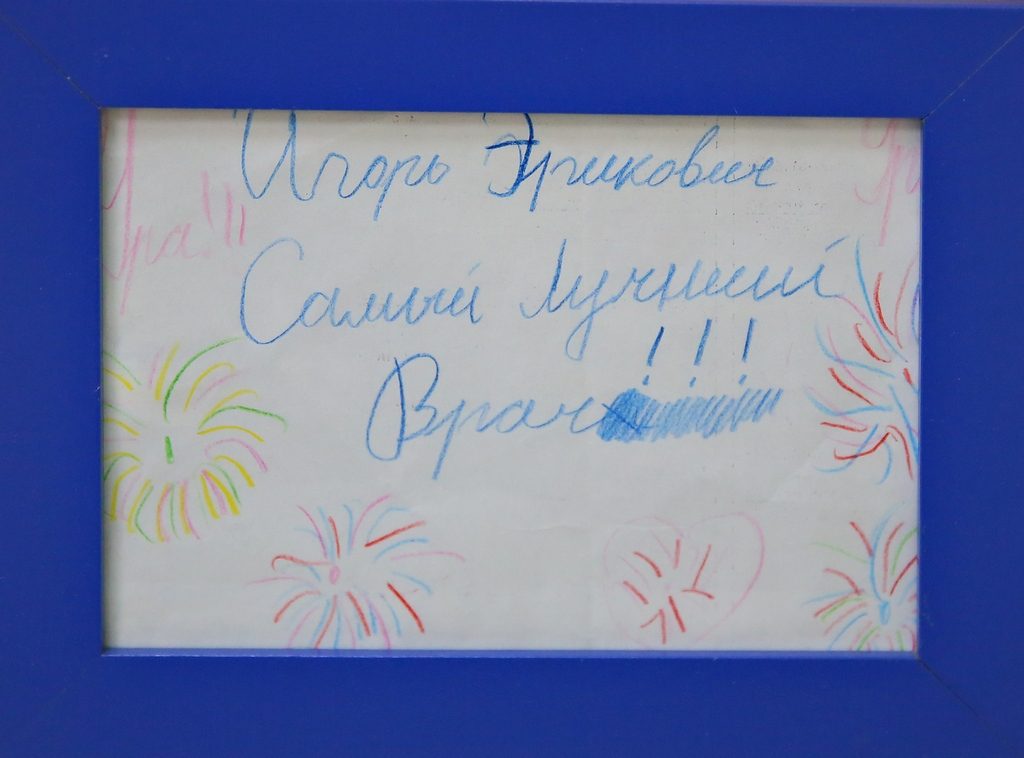 Игорь Эрикович
Ура!!!
Самый Лучший
!!!
Врач